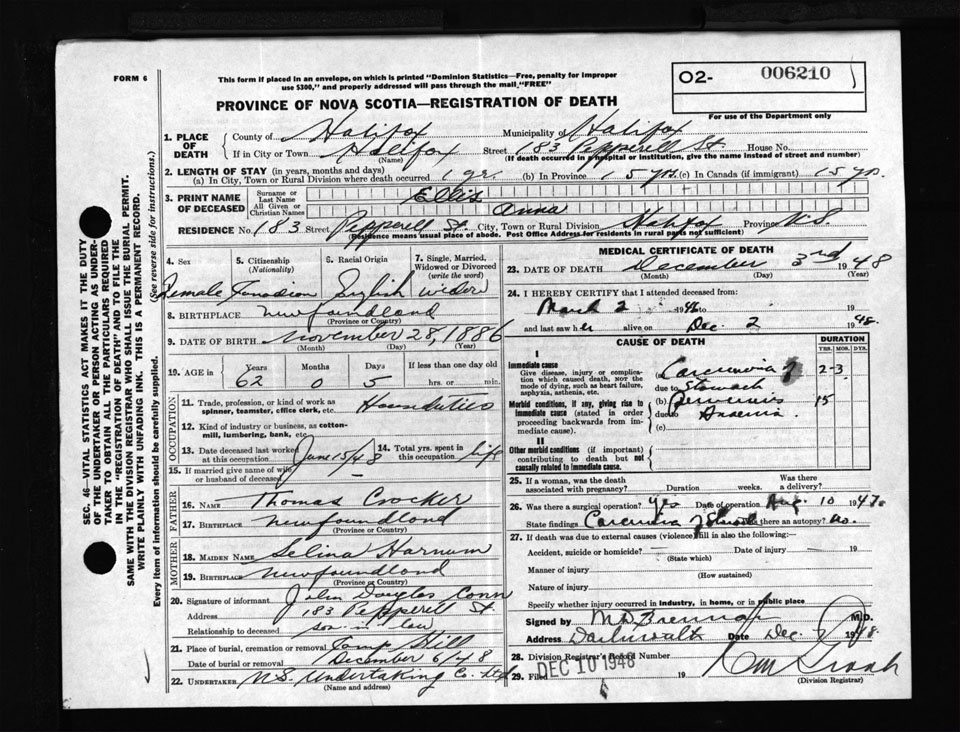 FORM 6
This form if placed in an envelope, on which is printed "Dominion Statistics—Free, penalty for improper
use $300," and properly addressed will pass through the mail, "FREE"
O2- 006210
For use of the Department only
PROVINCE OF NOVA SCOTIA—REGISTRATION OF DEATH
1. PLACE OF DEATH
County of Halifax Municipality of Halifax
If in City or Town Halifax Street 183 Pepperell St. House No.
(Name) (If death occurred in a hospital or institution, give the name instead of street and number)
2. LENGTH OF STAY (in years, months and days)
(a) In City, Town or Rural Division where death occurred 1 yr. (b) In Province 15 yrs. (c) In Canada (if immigrant) 15 yrs.
3. PRINT NAME OF DECEASED
Surname or Last Name Ellis
All Given or Christian Names Anna
RESIDENCE No. 183 Street Pepperell St. City, Town or Rural Division Halifax Province N.S.
(Residence means usual place of abode. Post Office Address for residents in rural parts not sufficient)
4. Sex Female
5. Citizenship (Nationality) Canadian
6. Racial Origin English
7. Single, Married, Widowed or Divorced (write the word) widow
8. BIRTHPLACE Newfoundland
(Province or Country)
9. DATE OF BIRTH November 28, 1886
(Month) (Day) (Year)
10. AGE in Years 62 Months 0 Days 5 If less than one day old hrs. or min.
OCCUPATION
11. Trade, profession or kind of work as spinner, teamster, office clerk, etc. Housduties
12. Kind of industry or business, as cotton-mill, lumbering, bank, etc.
13. Date deceased last worked at this occupation June 15/48
14. Total yrs. spent in this occupation life
15. If married give name of wife or husband of deceased
FATHER
16. NAME Thomas Crocker
17. BIRTHPLACE Newfoundland
(Province or Country)
MOTHER
18. MAIDEN NAME Selina Harnum
19. BIRTHPLACE Newfoundland
(Province or Country)
20. Signature of informant John Douglas Conn
Address 183 Pepperell St.
Relationship to deceased son in law
21. Place of burial, cremation or removal Camp Hill
Date of burial or removal December 6/48
22. UNDERTAKER N.S. Undertaking Co. Ltd
(Name and address)
MEDICAL CERTIFICATE OF DEATH
23. DATE OF DEATH December 3rd 1948
(Month) (Day) (Year)
24. I HEREBY CERTIFY that I attended deceased from:
March 2 1946 to 19
and last saw her alive on Dec 2 1948.
CAUSE OF DEATH
DURATION
YRS. MOS. DYS.
I
Immediate cause
Give disease, injury or complication which caused death, not the mode of dying, such as heart failure, asphyxia, asthenia, etc.
(a) Carcinoma of 2-3
due to Stomach
Morbid conditions, if any, giving rise to immediate cause (stated in order proceeding backwards from immediate cause).
(b) Pernicious 15
due to Anaemia
(c)
II
Other morbid conditions (if important) contributing to death but not causally related to immediate cause.
25. If a woman, was the death associated with pregnancy? Duration weeks. Was there a delivery?
26. Was there a surgical operation? yes Date of operation Aug. 10 1947.
State findings Carcinoma of Stomach Was there an autopsy? no.
27. If death was due to external causes (violence) fill in also the following:—
Accident, suicide or homicide? Date of injury 19
(State which)
Manner of injury
(How sustained)
Nature of injury
Specify whether injury occurred in industry, in home, or in public place
Signed by M.D. Brennan M.D.
Address Date Dec. 1948.
28. Division Registrar's Record Number
29. Filed DEC 10 1948 19
(Division Registrar)
SEC. 46—VITAL STATISTICS ACT MAKES IT THE DUTY
OF THE UNDERTAKER OR PERSON ACTING AS UNDER-
TAKER TO OBTAIN ALL THE PARTICULARS REQUIRED
IN THE "REGISTRATION OF DEATH" AND TO FILE THE
SAME WITH THE DIVISION REGISTRAR WHO SHALL ISSUE THE BURIAL PERMIT.
WRITE PLAINLY WITH UNFADING INK. THIS IS A PERMANENT RECORD.
Every item of information should be carefully supplied. (See reverse side for instructions.)